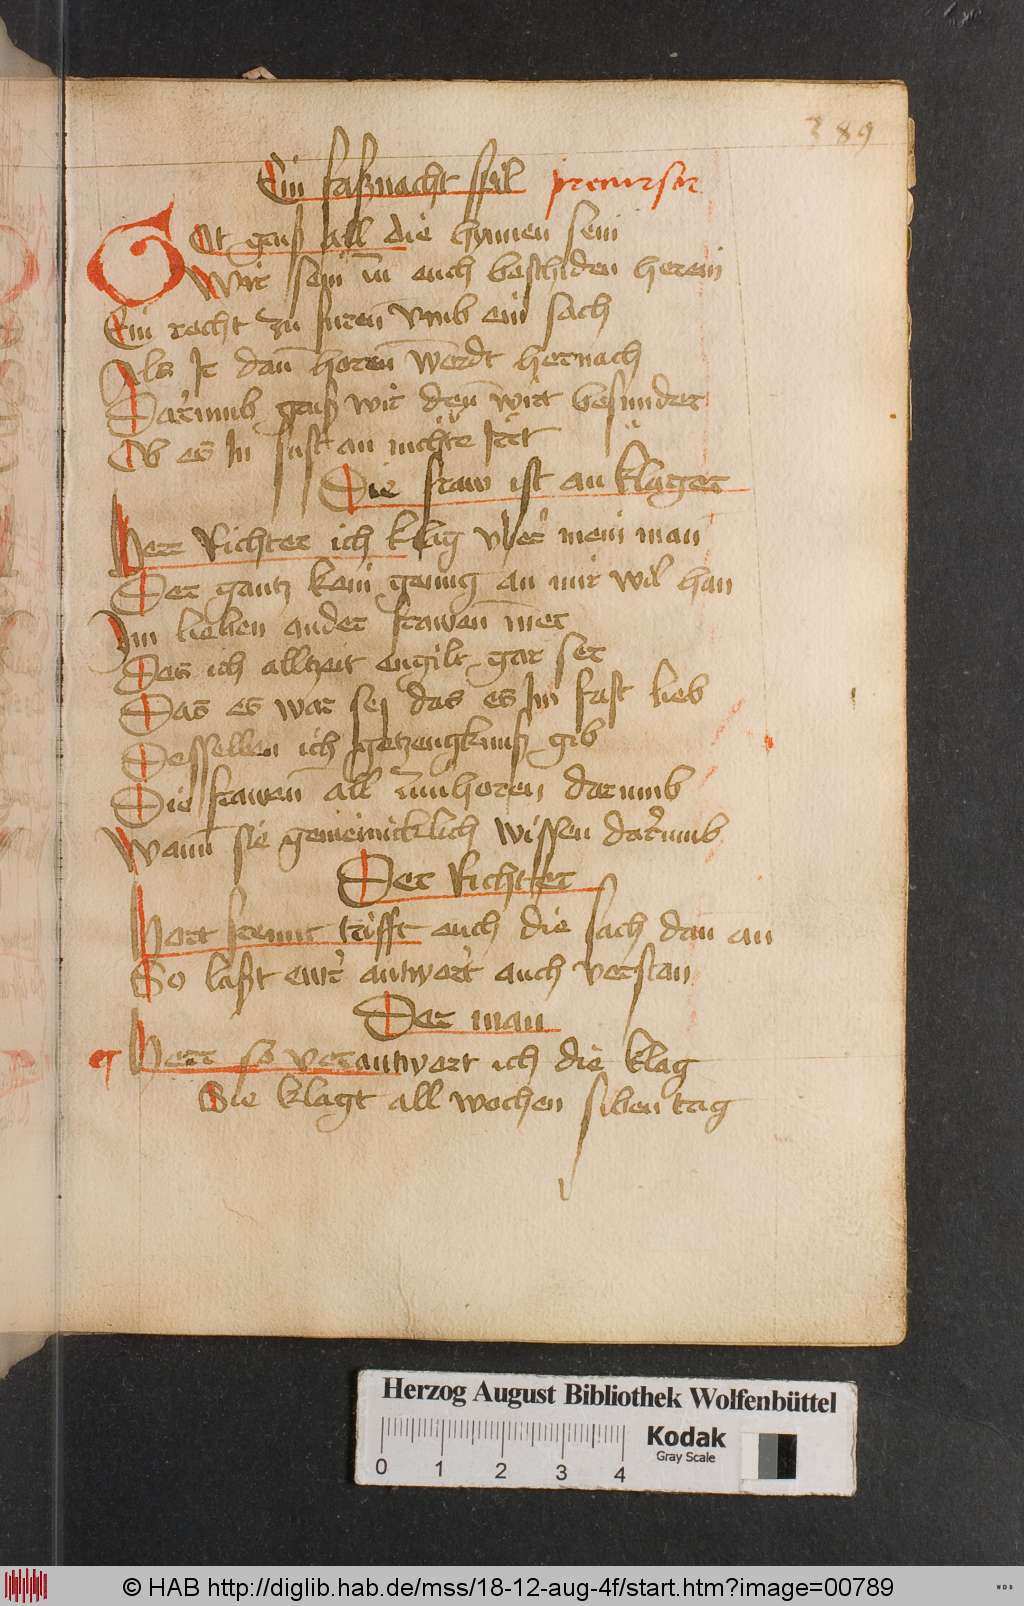 389
Ein faßnacht spil precursor
Got gruß all die hynnen sein
Wir sein zu euch beschiden herein
Ein recht zu furen vmb ein sach
Als Ir dan̄ horen̄ werdt hernach
Darumb gruß wir den̄ wirt besunder
Ob es In sust an nichte Irrt
Die fraw ist an klager
Herr Richter ich klag vber mein man
Der gantz kein genug an mir wil han
Im lieben ander frawen̄ mer
Des ich alltzeit engilt gar ser
Das es war sej das es Im fast lieb
Desselben ich getzeugknuß gib
Die frawen̄ all darumb
Wann sie gemeinicklich wissen darumb
Der Richter
Hort freunt trifft euch die sach dan an
So laßt ewr antwort auch verstan
Der man
Herr so verantwort ich die klag
Sie klagt all wochen siben tag
Herzog August Bibliothek Wolfenbüttel
Kodak
Gray Scale
0 1 2 3 4
© HAB http://diglib.hab.de/mss/18-12-aug-4f/start.htm?image=00789